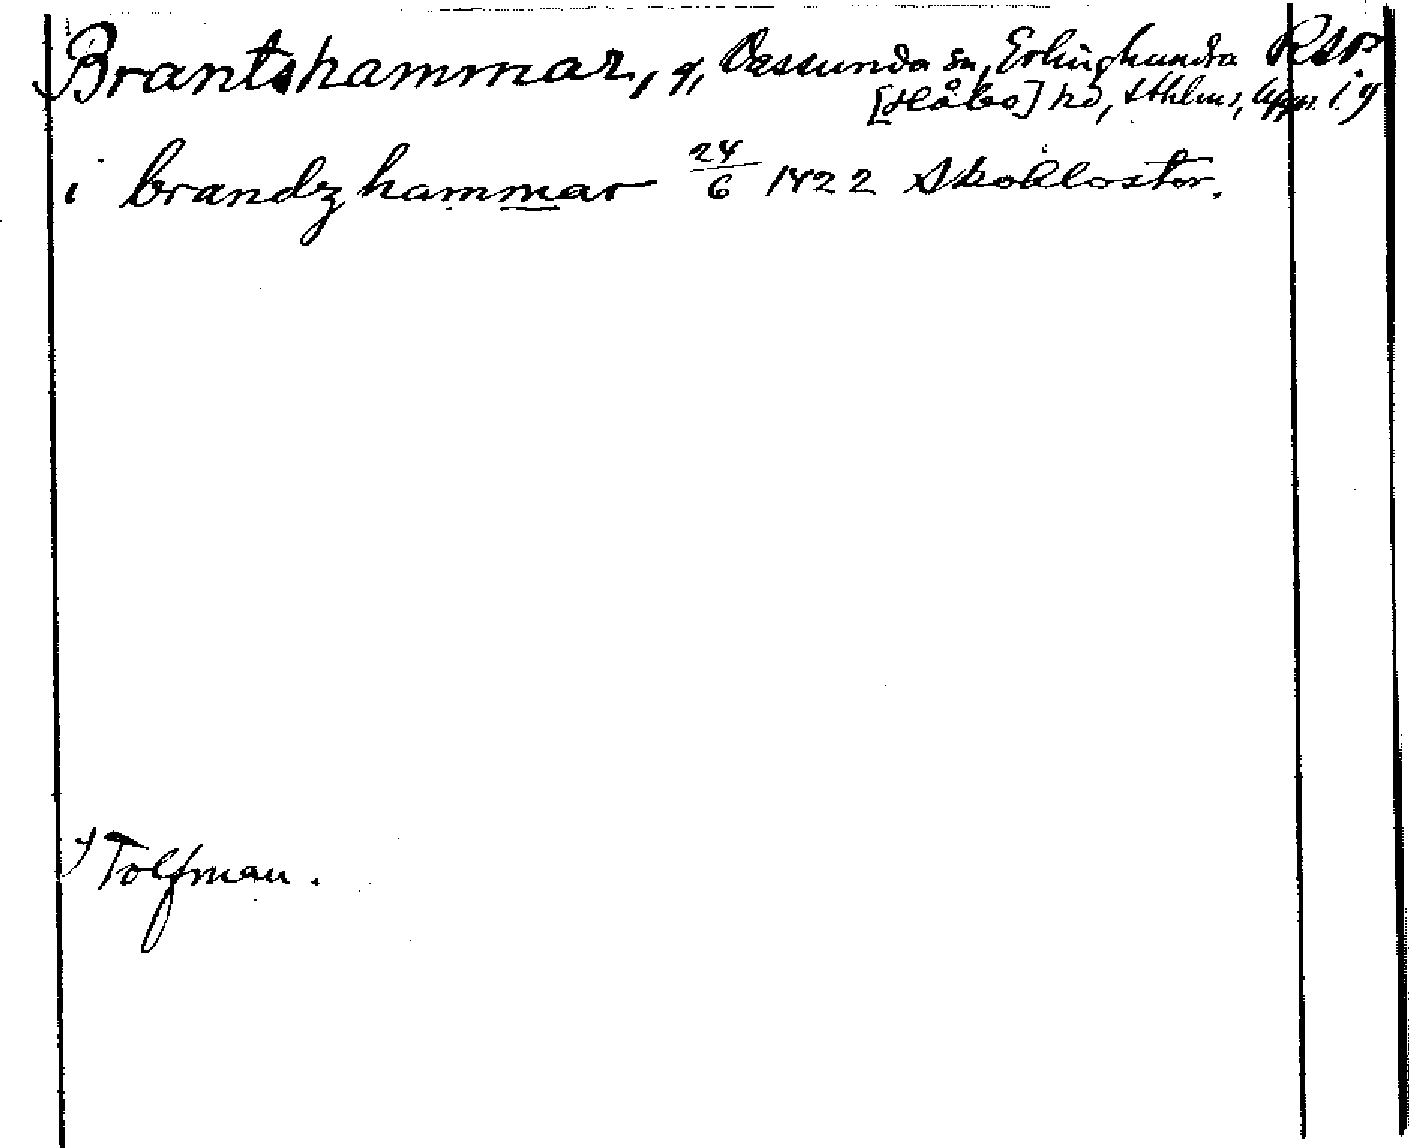 Brantshammar, g, Vassunda sn, Erlinghundra
[Håbo] hd, Sthlms, Upps.
i brandzhammar 24/6 1422 Skokloster.
Tolfman.